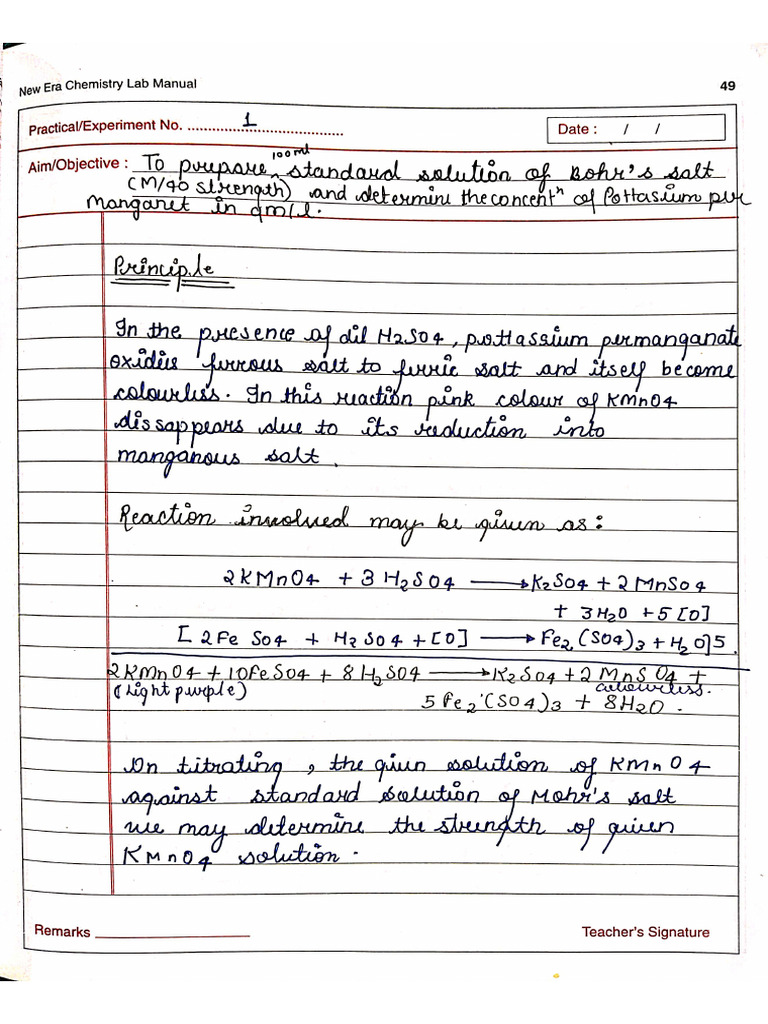 New Era Chemistry Lab Manual 49
Practical/Experiment No. ...................................... 1 Date : / /
Aim/Objective : To prepare 100ml standard solution of Bohr's salt
(M/40 strength) and determine the concentⁿ of Pottasium per
manganet in gm/l.
Principle
In the presence of dil H2SO4, pottassium permanganate
oxidies ferrous salt to ferric salt and itself become
colourless. In this reaction pink colour of KMnO4
dissappears due to its reduction into
manganous salt.
Reaction involved may be given as:
2KMnO4 + 3H2SO4 ⟶ K2SO4 + 2MnSO4
+ 3H2O + 5[O]
[2FeSO4 + H2SO4 + [O] ⟶ Fe2(SO4)3 + H2O]5
2KMnO4 + 10FeSO4 + 8H2SO4 ⟶ K2SO4 + 2MnSO4 +
(Light purple) colourless.
5Fe2(SO4)3 + 8H2O.
On titrating, the giun solution of KMnO4
against standard solution of Mohr's salt
we may determine the strength of given
KMnO4 solution.
Remarks Teacher's Signature